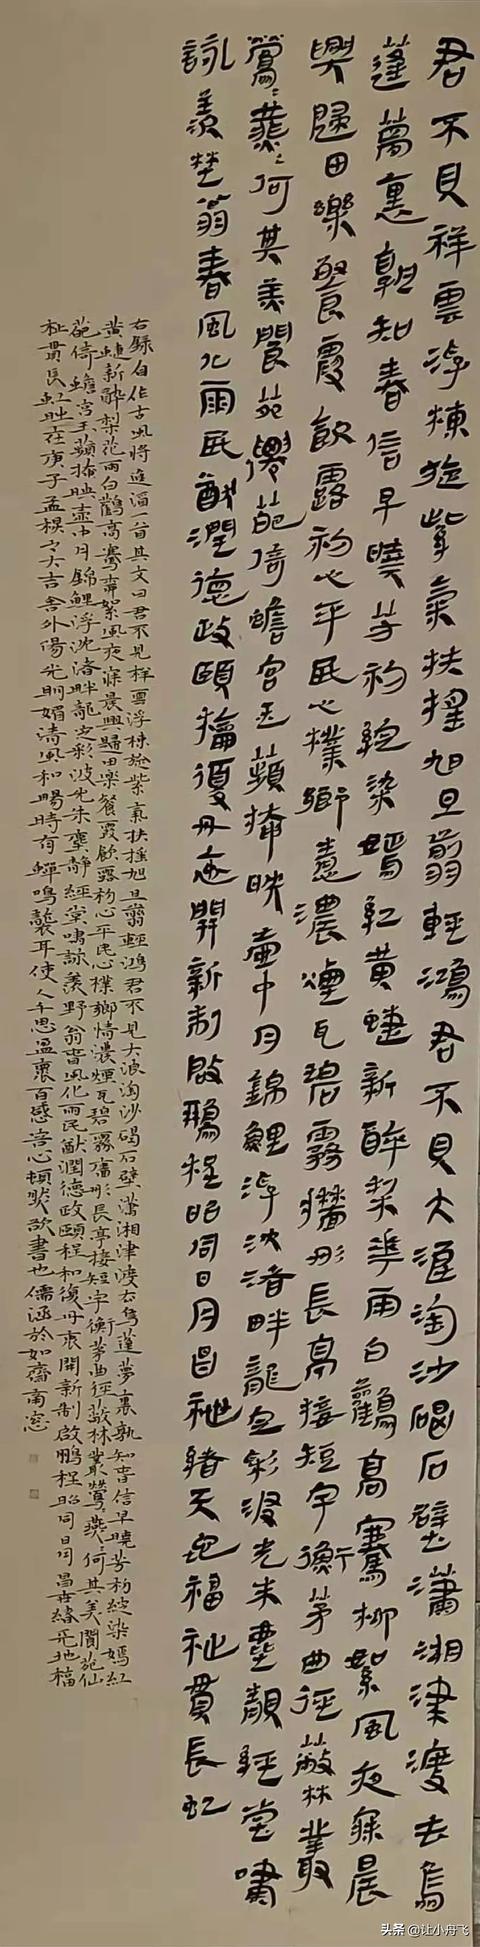 君不見祥雲浮棟旋紫氣扶搖旭旦翦輕鴻君不見大浪淘沙碣石壁瀟湘津渡去雋
蓬萬裏孰知春信早曉芳初綻染嫣紅黃蜨新醉梨花雨白鶴高騫柳絮風夜寐晨
興歸田樂餐霞飲露初心平民心樸鄉意濃煙瓦碧霧猶形長亭接短宇衡茅曲徑蔽林叢
鶯鶯燕燕何其美閬苑僊葩倚蟾宮玉蘋掩映壺中月錦鯉浮沈渚畔龍之彩波光朱塵靜經堂嘯
詠羨埜翁春風化雨民猷潤德政頤和復丹衷開新制啟鵬程昭同日月昌世緒天地福祉貫長虹
右錄自作古風將進酒一首其文曰君不見祥雲浮棟旋紫氣扶搖旭旦翦輕鴻君不見大浪淘沙碣石壁瀟湘津渡去雋蓬夢裏孰知春信早曉芳初綻染嫣紅
黃蜨新醉梨花雨白鶴高騫絮風夜寐晨興歸田樂餐霞飲露初心平民心樸鄉情濃煙瓦碧霧猶形長亭接短宇衡茅曲徑蔽林叢鶯鶯燕燕何其美閬苑仙
葩倚蟾宮玉蘋掩映壺中月錦鯉浮沈渚畔龍之彩波光朱塵靜經堂嘯詠羨野翁春風化雨民猷潤德政頤和復丹衷開新制啟鵬程昭同日月昌世緒天地福
祉貫長虹時在庚子孟秋大吉舍外陽光明媚清風和暢時有蟬鳴襲耳使人千思盈裏百感喜心頓然欲書也儒涵於如齋南窓
头条 @让小舟飞